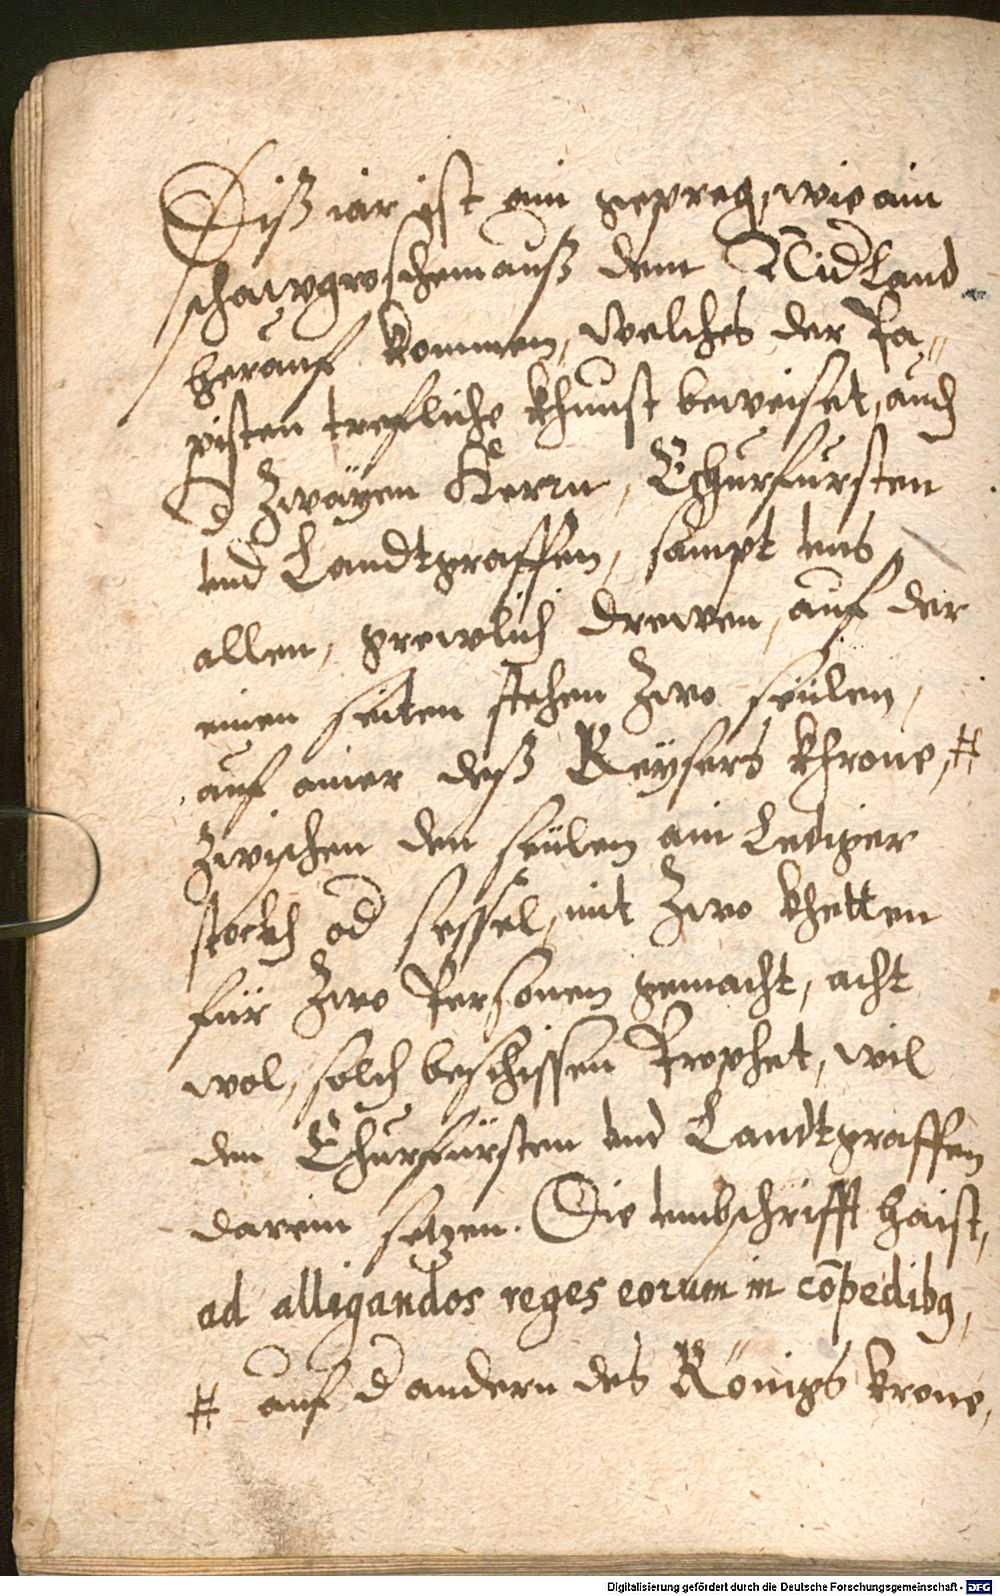 Diß iar ist ain gepreg, wie ain
schawgroschem auß dem Nidland
herauf kommen, welches der Pa„
pisten trefliche khunst beweiset, auch
d zwayen Herrn, Churfursten
vnd Landtgraffen, sampt vns
allen, grewlich drewen, auf der
einen seiten stehen zwo seülen,
auf ainer deß Keysers khrone, #
zwischen den seülen ain Lediger
stockh od sessel, mit zwo khetten
für zwo Personen gemacht, acht
wol, solch beschissen Prophet, wil
den Churfürsten vnd Landtgraffen
darein setzen. Die vmbschrifft haist,
ad alligandos reges eorum in cōpedibꝫ,
# auf d andern des Königs krone,
Digitalisierung gefördert durch die Deutsche Forschungsgemeinschaft - DFG